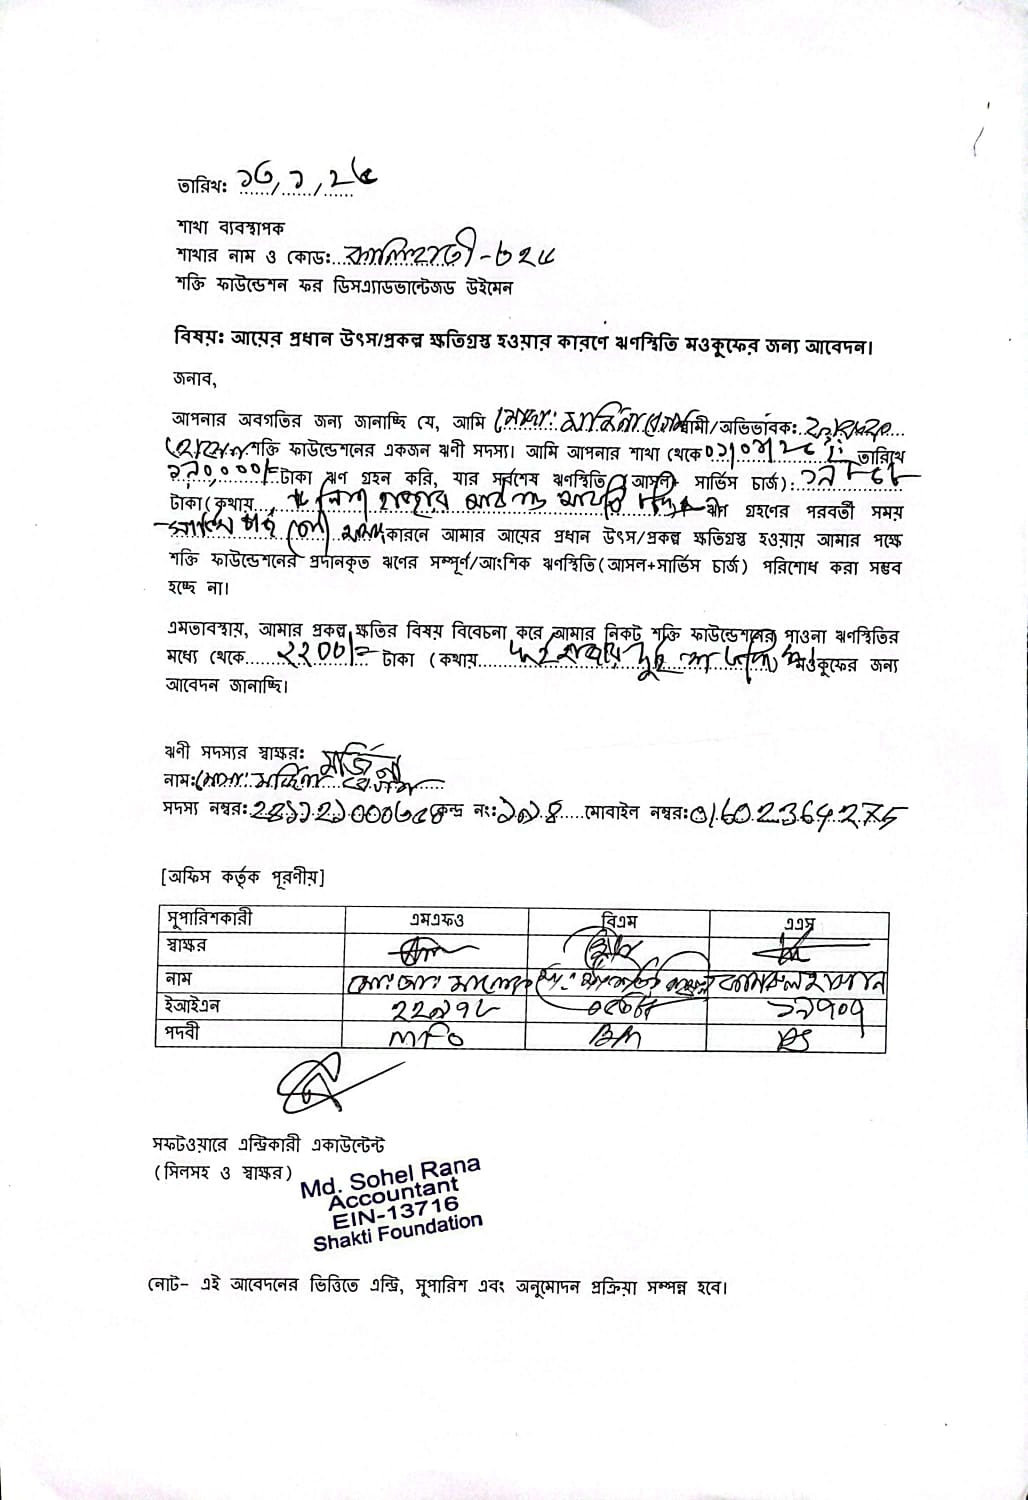 তারিখ: ১৩/১/২৫
শাখা ব্যবস্থাপক
শাখার নাম ও কোড: কালিহাতী-৬২৫
শক্তি ফাউন্ডেশন ফর ডিসএ্যাডভান্টেজড উইমেন
বিষয়: আয়ের প্রধান উৎস/প্রকল্প ক্ষতিগ্রস্ত হওয়ার কারণে ঋণস্থিতি মওকুফের জন্য আবেদন।
জনাব,
আপনার অবগতির জন্য জানাচ্ছি যে, আমি মোছা: মর্জিনা বেগম স্বামী/অভিভাবক:
হোসেন শক্তি ফাউন্ডেশনের একজন ঋণী সদস্য। আমি আপনার শাখা থেকে তারিখে
টাকা ঋণ গ্রহন করি, যার সর্বশেষ ঋণস্থিতি (আসল+ সার্ভিস চার্জ):
টাকা (কথায় ঋণ গ্রহণের পরবর্তী সময়
কারনে আমার আয়ের প্রধান উৎস/প্রকল্প ক্ষতিগ্রস্ত হওয়ায় আমার পক্ষে
শক্তি ফাউন্ডেশনের প্রদানকৃত ঋণের সম্পূর্ণ/আংশিক ঋণস্থিতি(আসল+সার্ভিস চার্জ) পরিশোধ করা সম্ভব
হচ্ছে না।
এমতাবস্থায়, আমার প্রকল্প ক্ষতির বিষয় বিবেচনা করে আমার নিকট শক্তি ফাউন্ডেশনের পাওনা ঋণস্থিতির
মধ্যে থেকে ২২০০/= টাকা (কথায় দুই হাজার দুই শত মওকুফের জন্য
আবেদন জানাচ্ছি।
ঋণী সদস্যর স্বাক্ষর: মর্জিনা
নাম: মোছা: মর্জিনা বেগম
সদস্য নম্বর: কেন্দ্র নং: মোবাইল নম্বর: 01602364275
[অফিস কর্তৃক পূরণীয়]
সুপারিশকারী এমএফও বিএম এএস
স্বাক্ষর
নাম মো: আ: মালেক কামরুল হাসান
ইআইএন ২২৯৭৮ ১৯৭০৭
পদবী MFO BM AS
সফটওয়ারে এন্ট্রিকারী একাউন্টেন্ট
(সিলসহ ও স্বাক্ষর)
Md. Sohel Rana
Accountant
EIN-13716
Shakti Foundation
নোট- এই আবেদনের ভিত্তিতে এন্ট্রি, সুপারিশ এবং অনুমোদন প্রক্রিয়া সম্পন্ন হবে।